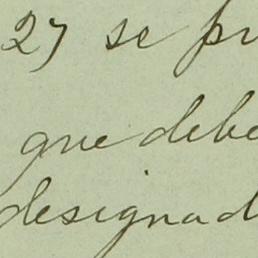 27 se pr
que debe
designad